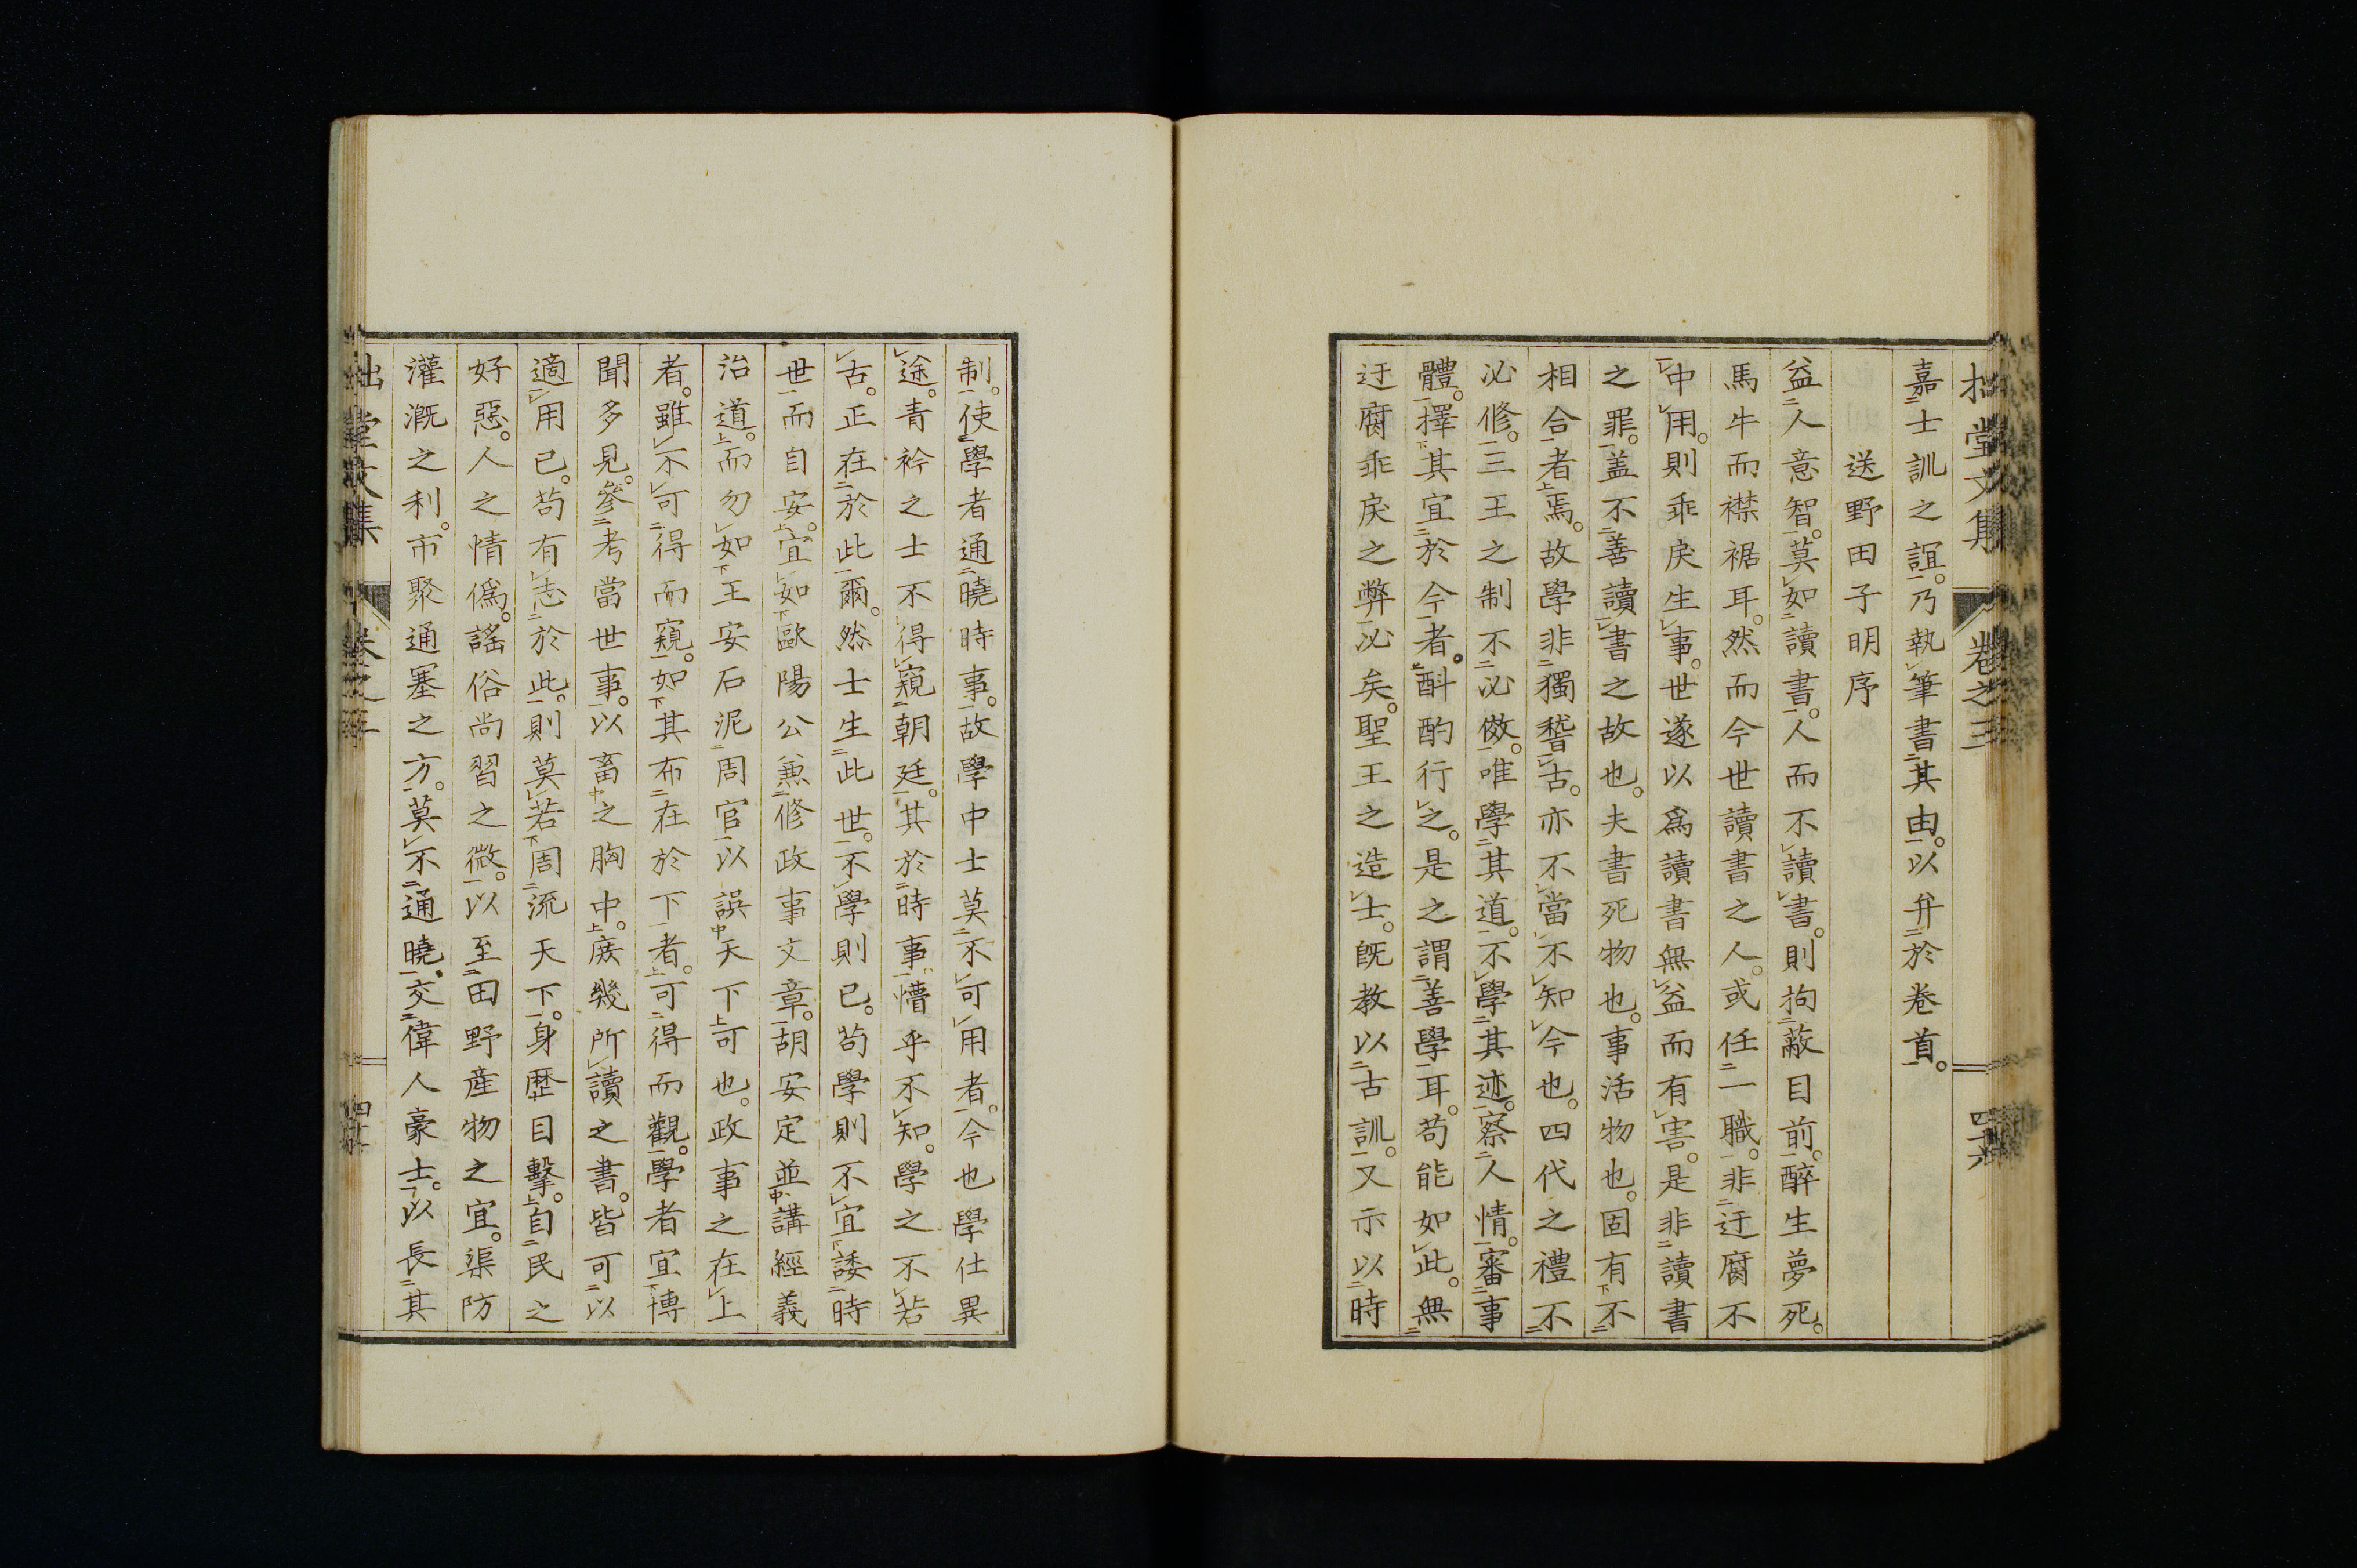 拙堂文集 卷之三 四十六
嘉士訓之誼。乃執筆書其由。以弁於卷首。
送野田子明序
益人意智。莫如讀書。人而不讀書。則拘蔽目前。醉生夢死。
馬牛而襟裾耳。然而今世讀書之人。或任一職。非迂腐不
中用。則乖戾生事。世遂以爲讀書無益而有害。是非讀書
之罪。盖不善讀書之故也。夫書死物也。事活物也。固有不
相合者焉。故學非獨稽古。亦不當不知今也。四代之禮不
必修。三王之制不必傚。唯學其道。不學其迹。察人情。審事
體。擇其宜於今者。斟酌行之。是之謂善學耳。苟能如此。無
迂腐乖戾之弊必矣。聖王之造士。既教以古訓。又示以時
制。使學者通曉時事。故學中士莫不可用者。今也學仕異
途。青衿之士不得窺朝廷。其於時事懵乎不知。學之不若
古。正在於此爾。然士生此世。不學則已。苟學則不宜諉時
世而自安。宜如歐陽公兼修政事文章。胡安定並講經義
治道。而勿如王安石泥周官以誤天下可也。政事之在上
者。雖不可得而窺。如其布在於下者。可得而觀。學者宜博
聞多見。參考當世事。以畜之胸中。庶幾所讀之書。皆可以
適用已。苟有志於此。則莫若周流天下。身歷目擊。自民之
好惡。人之情僞。謠俗尚習之微。以至田野産物之宜。渠防
灌漑之利。市聚通塞之方。莫不通曉。交偉人豪士。以長其
堂文集 卷之三